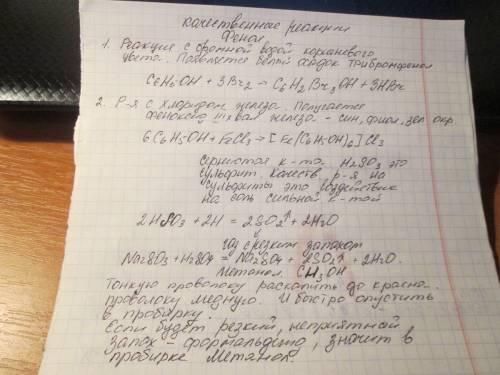 качественные реакции
Фенол
1. Реакция с бромной водой коричневого
цвета. Появляется белый осадок трибромфенол
C6H5OH + 3Br2 → C6H2Br3OH + 3HBr
2. Р-я с хлоридом железа. Получается
фенолят III хвал железа - син, фиол, зел окр.
6C6H5OH + FeCl3 → [Fe(C6H5OH)6]Cl3
Сернистая к-та. H2SO3 это
сульфит. Качеств. р-я на
сульфиты это воздействие
на соль сильной к-той
2HSO3 + 2H = 2SO2↑ + 2H2O
газ с резким запахом
Na2SO3 + H2SO4 = Na2SO4 + 2SO2↑ + 2H2O
Метанол. CH3OH
Тонкую проволоку раскалить до красна.
проволоку медную. И быстро опустить
в пробирку.
Если будет резкий, неприятной
запах - формальдегид, значит в
пробирке метанол.